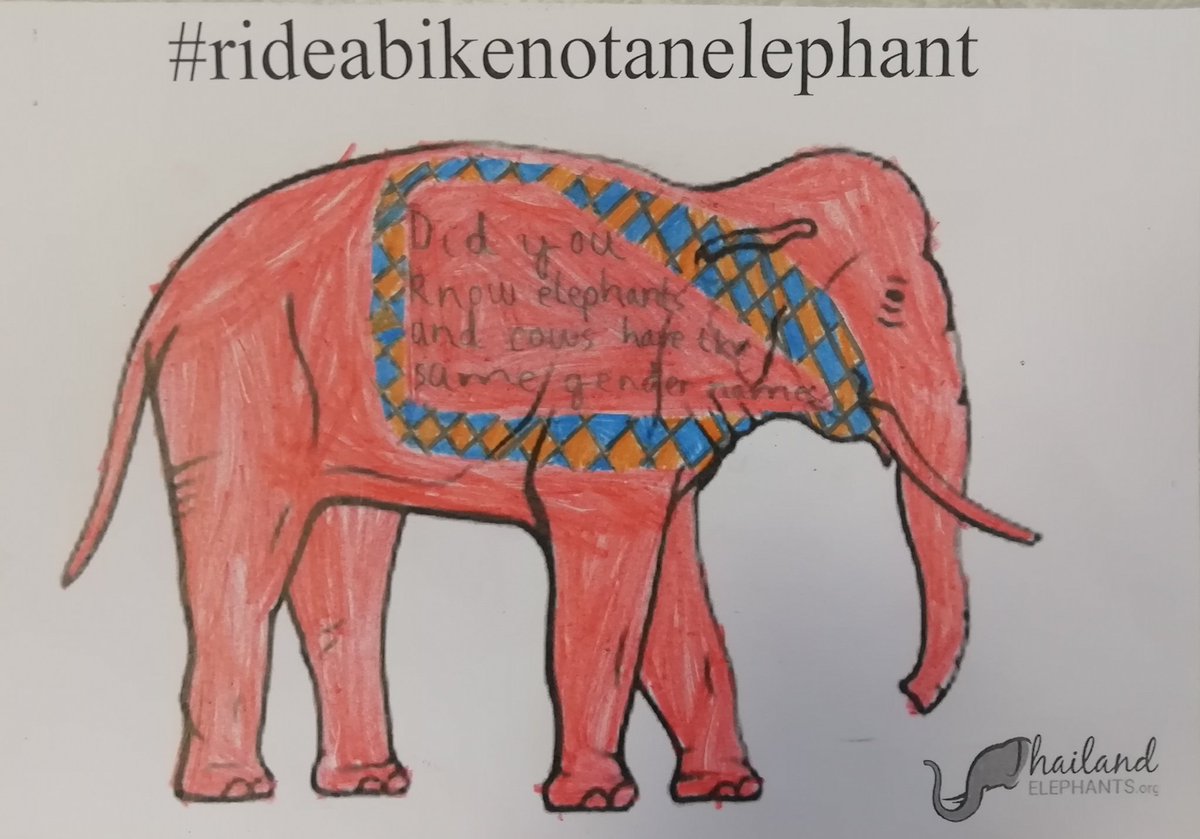 #rideabikenotanelephant
Did you
know elephants
and cows have the
same gender names
Thailand
ELEPHANTS.org